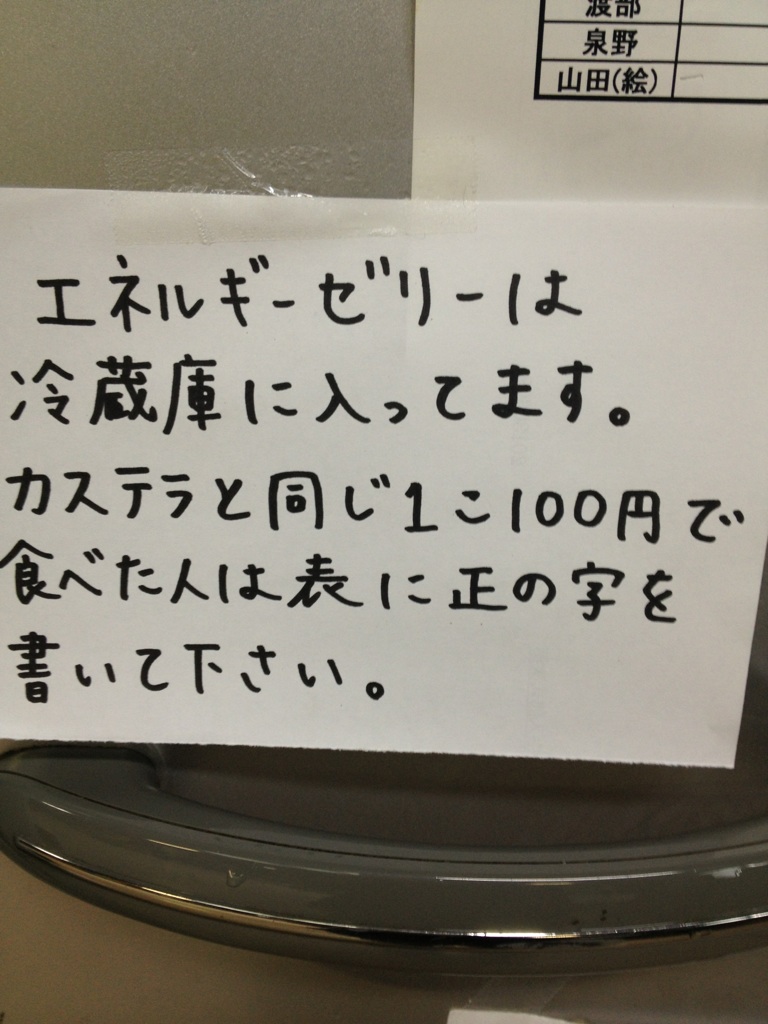 渡部
泉野
山田(絵)
エネルギーゼリーは
冷蔵庫に入ってます。
カステラと同じ1こ100円で
食べた人は表に正の字を
書いて下さい。